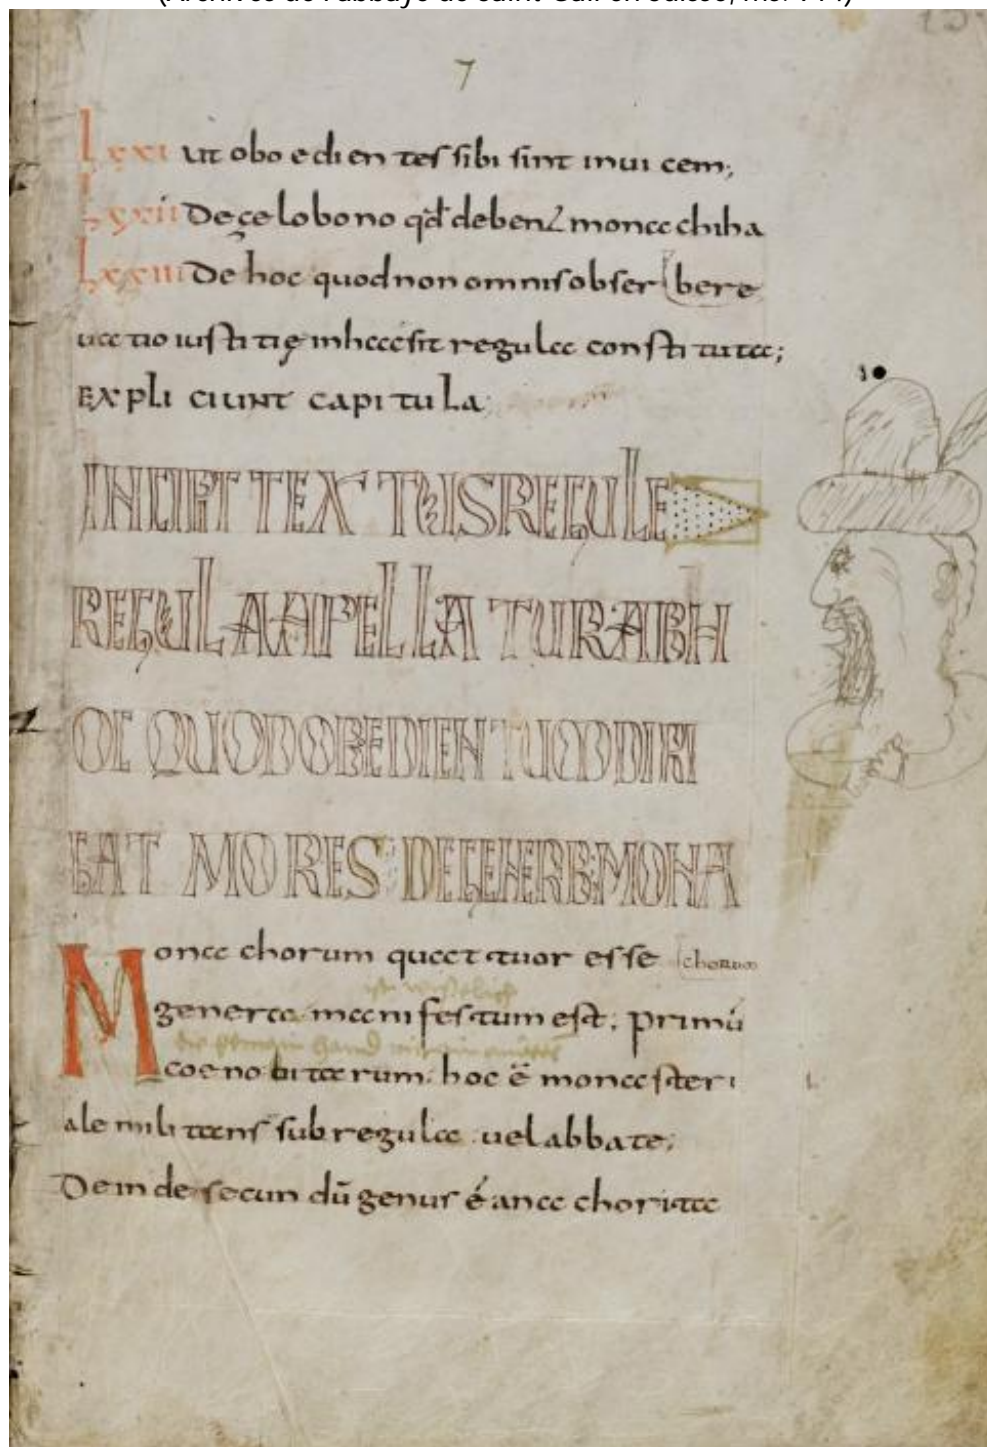 7
Lxxi ut oboedientes sibi sint inuicem;
Lxxii De çelo bono qđ debent monachi ha
Lxxiii De hoc quod non omnis obser bere
uatio iustitię in hac sit regula constituta;
EXPLICIUNT CAPITULA
INCIPIT TEXTUS REGULE
REGULA APELLATUR AB H
OC QUOD OBEDIENTUM DIRI
GAT MORES DE GENERE MONA
Monachorum quattuor esse chorum
genera manifestum est; primū
coenobitarum. hoc ē monasteri
ale militans sub regula uel abbate;
Deinde secundū genus ē anachorita